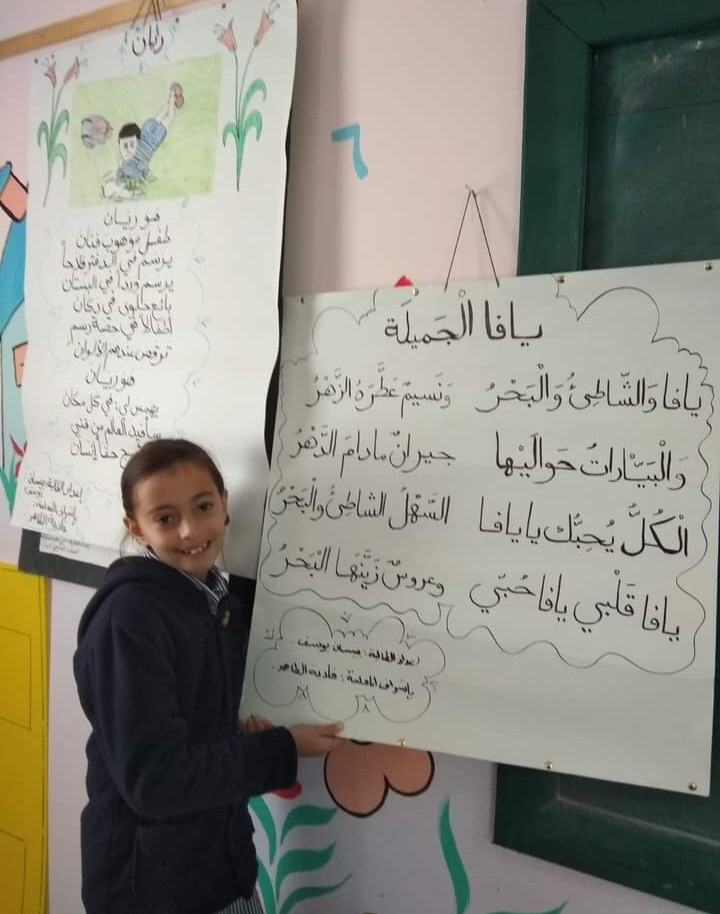 ريان
هو ريان
طفل موهوب فنان
يرسم في الدفتر فلاحاً
يرسم ورداً في البستان
بائع حلوى في دكان
أطفالاً في حصة رسم
ترقص عندهم الألوان
هو ريان
يهمس لي: في كل مكان
سأفيد العالم من فني
حقاً إنسان
إعداد الطالبة: ميسان يوسف
بإشراف المعلمة:
فادية الطاهر
يافا الْجَميلَة
يافا وَالشّاطِئُ وَالْبَحْرُ وَنَسيمٌ عَطَّرَهُ الزَّهْرُ
وَالْبَيّاراتُ حَوالَيْها جيرانٌ مادامَ الدَّهْرُ
الْكُلُّ يُحِبُّك يا يافا السَّهْلُ الشاطِئُ والْبَحْرُ
يافا قَلْبي يافا حُبّي وعروسٌ زَيَّنَها الْبَحْرُ
إعداد الطالبة: ميسان يوسف.
بإشراف المعلمة: فادية الطاهر.